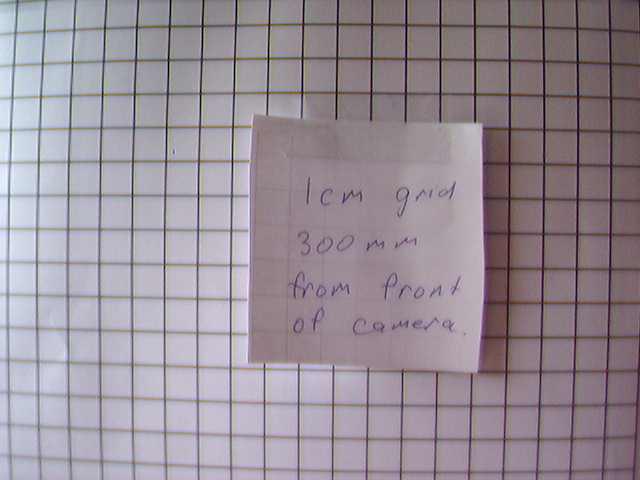 1cm grid
300mm
from front
of camera.